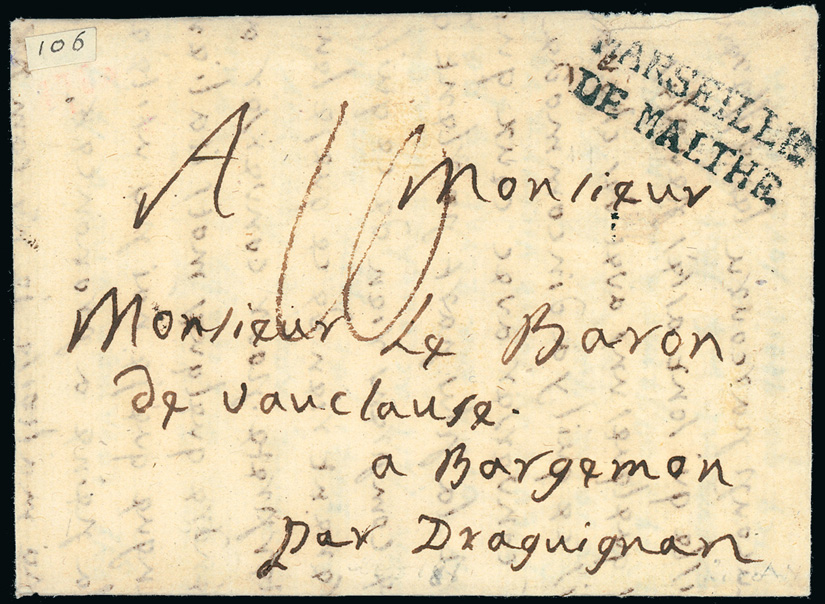 106
MARSEILLE
DE MALTHE
A Monsieur
10
Monsieur Le Baron
de vauclause.
a Bargemon
par Draguignan